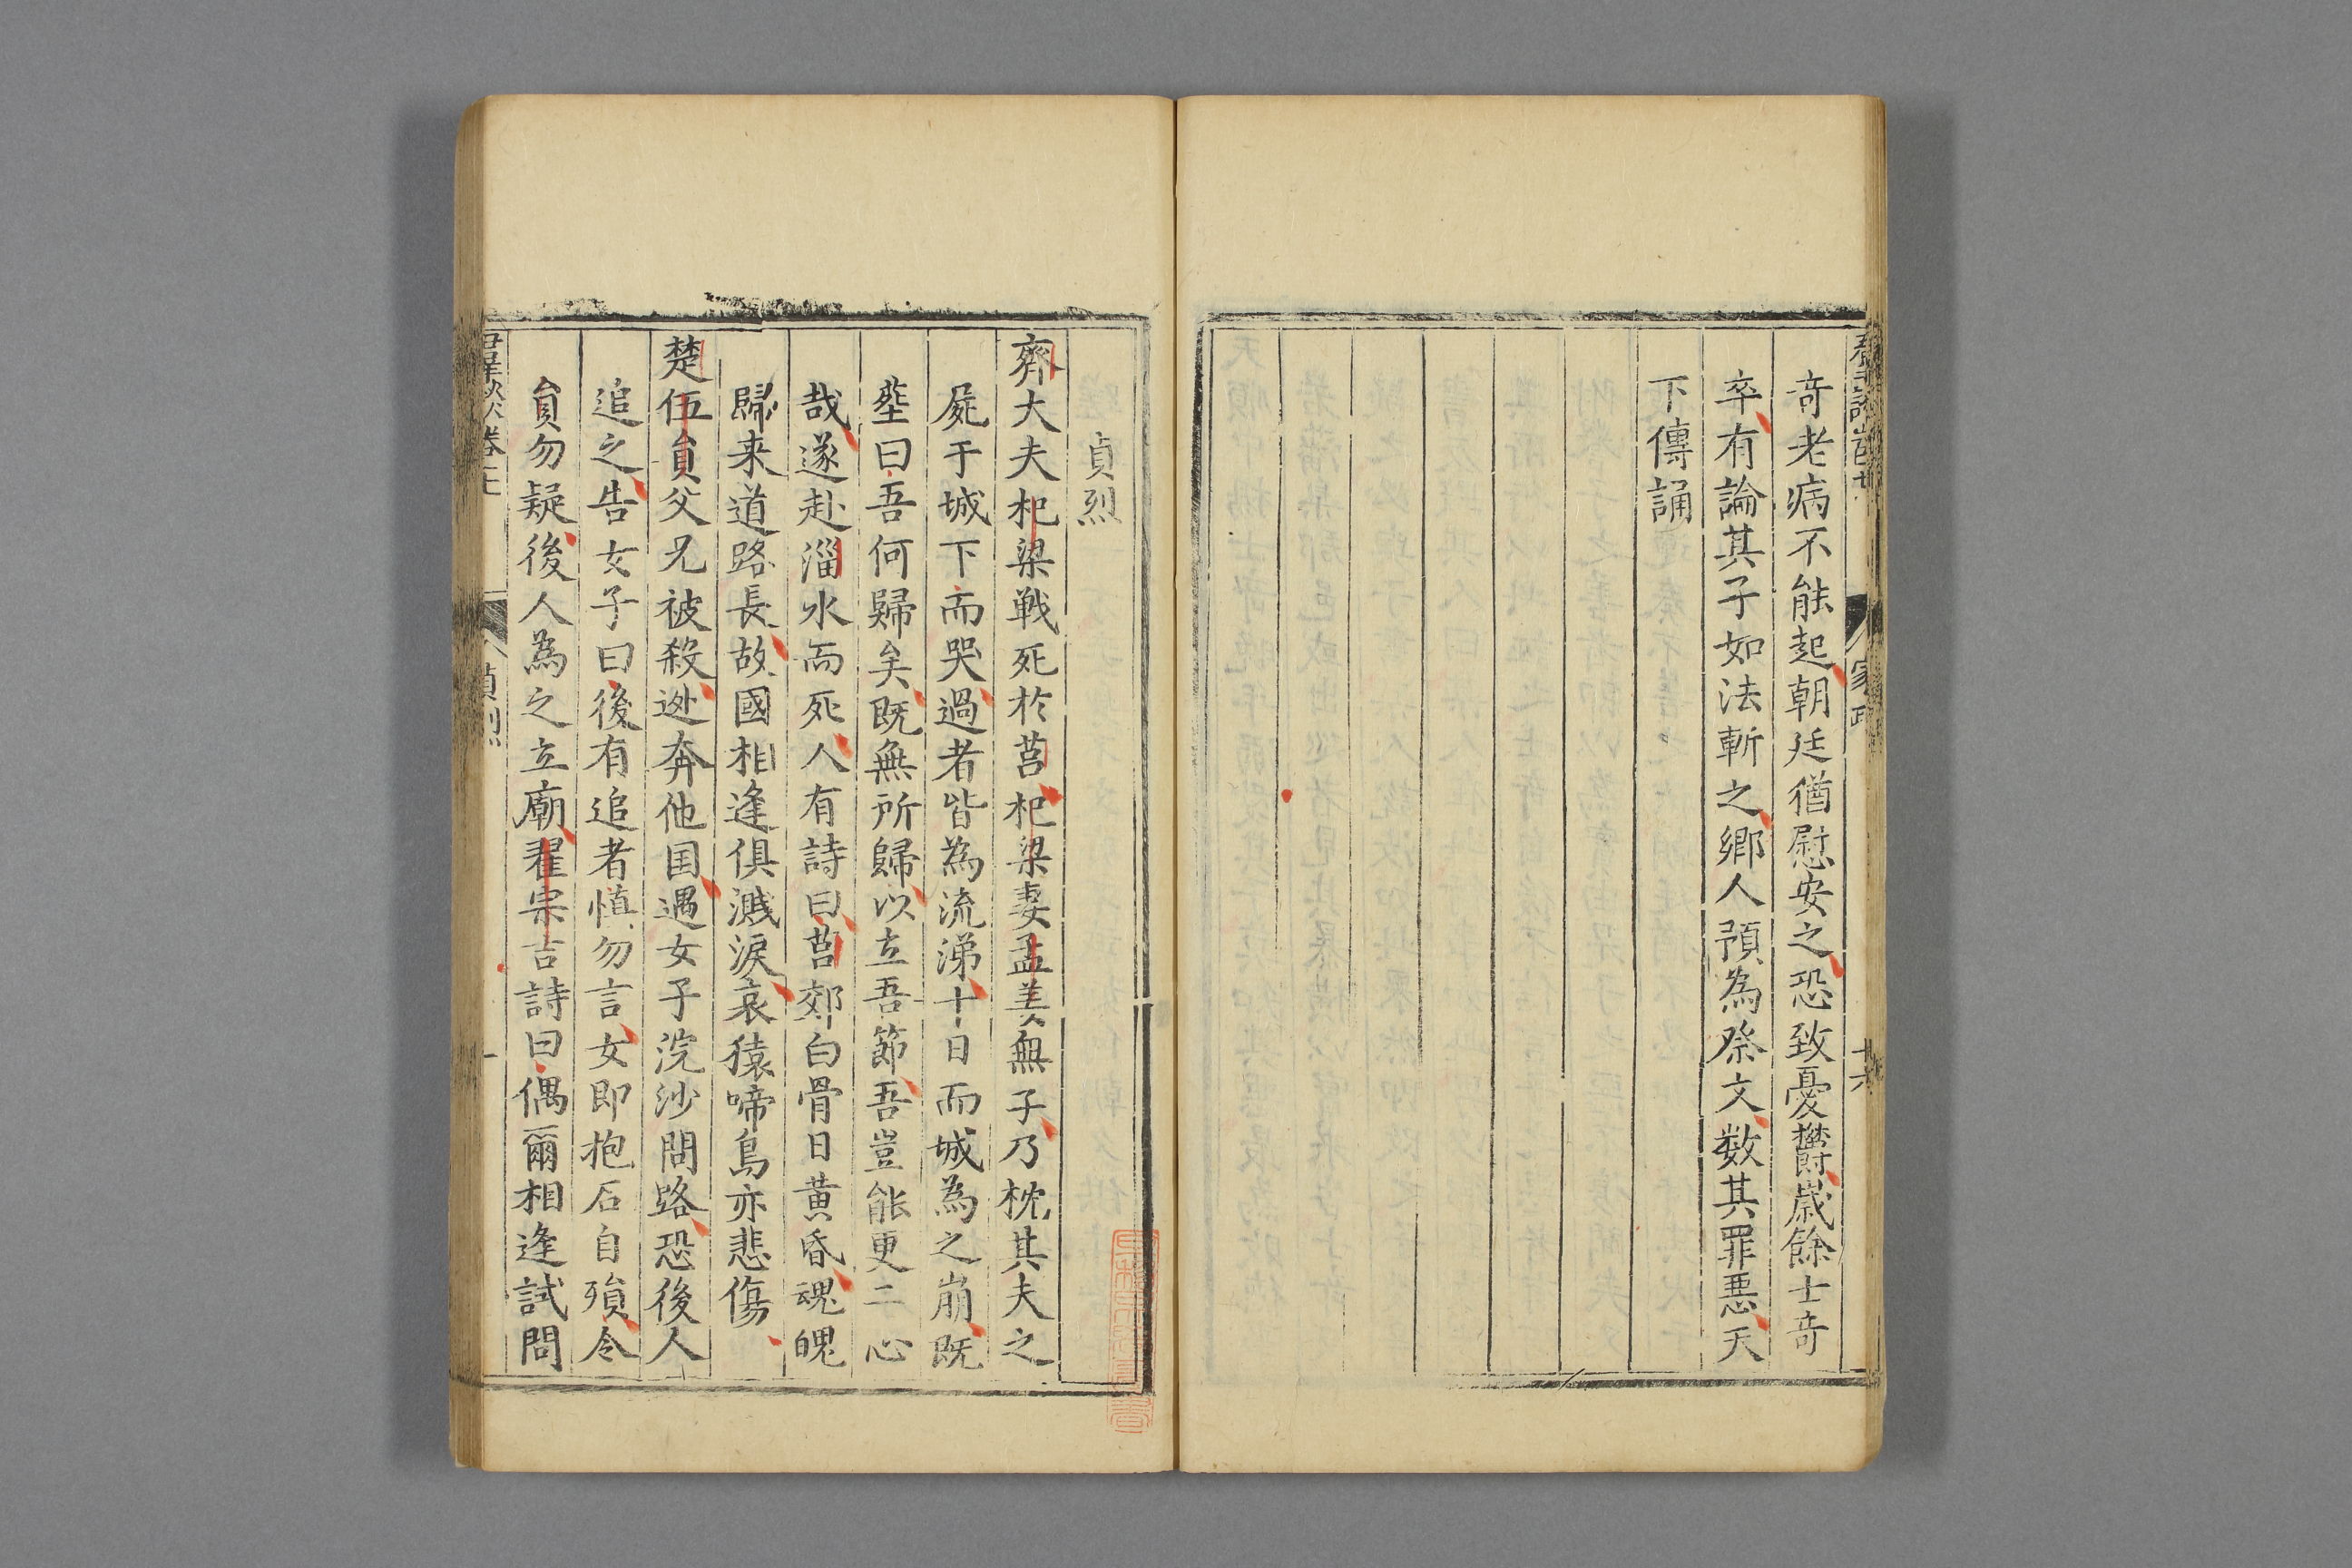 奇老病不能起朝廷猶慰安之恐致憂欝歲餘士奇
卒有論其子如法斬之鄉人預為祭文数其罪悪天
下傳誦
家政
十六
貞烈
齊大夫杞梁戦死於莒杞梁妻孟姜無子乃枕其夫之
屍于城下而哭過者皆為流涕十日而城為之崩既
塟曰吾何歸矣既無所歸以立吾節吾豈能更二心
哉遂赴淄水而死人有詩曰莒郊白骨日黄昏魂魄
歸来道路長故國相逢俱濺淚哀猿啼鳥亦悲傷
楚伍員父兄被殺迯奔他囯遇女子浣沙問路恐後人
追之告女子曰後有追者慎勿言女即抱石自殞令
員勿疑後人為之立廟翟宗吉詩曰偶爾相逢試問
貞烈